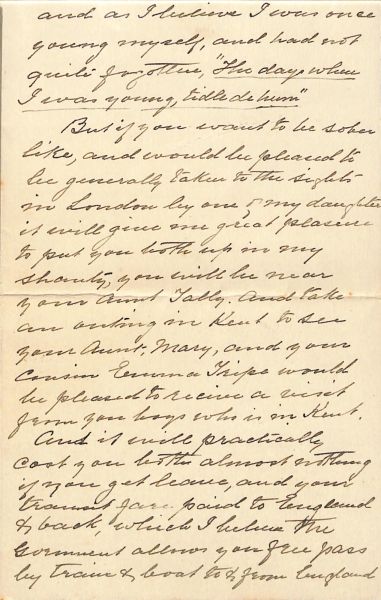 and as I believe I was once
young myself, and had not
quite forgotten, "The days when
I was young, tidle de hum"
But if you want to be sober
like, and would be pleased to
be generally taken to the sights
in London by one of my daughters
it will give me great pleasure
to put you both up in my
shanty, you will be near
your Aunt Tally. And take
an outing in Kent to see
your Aunt, Mary, and your
Cousin Emma Tripe would
be pleased to recieve a visit
from you boys who is in Kent.
And it will practically
cost you both almost nothing
if you get leave, and your
transit fare paid to England
& back, which I believe the
Goverment allows you free pass
by train & boat to & from England